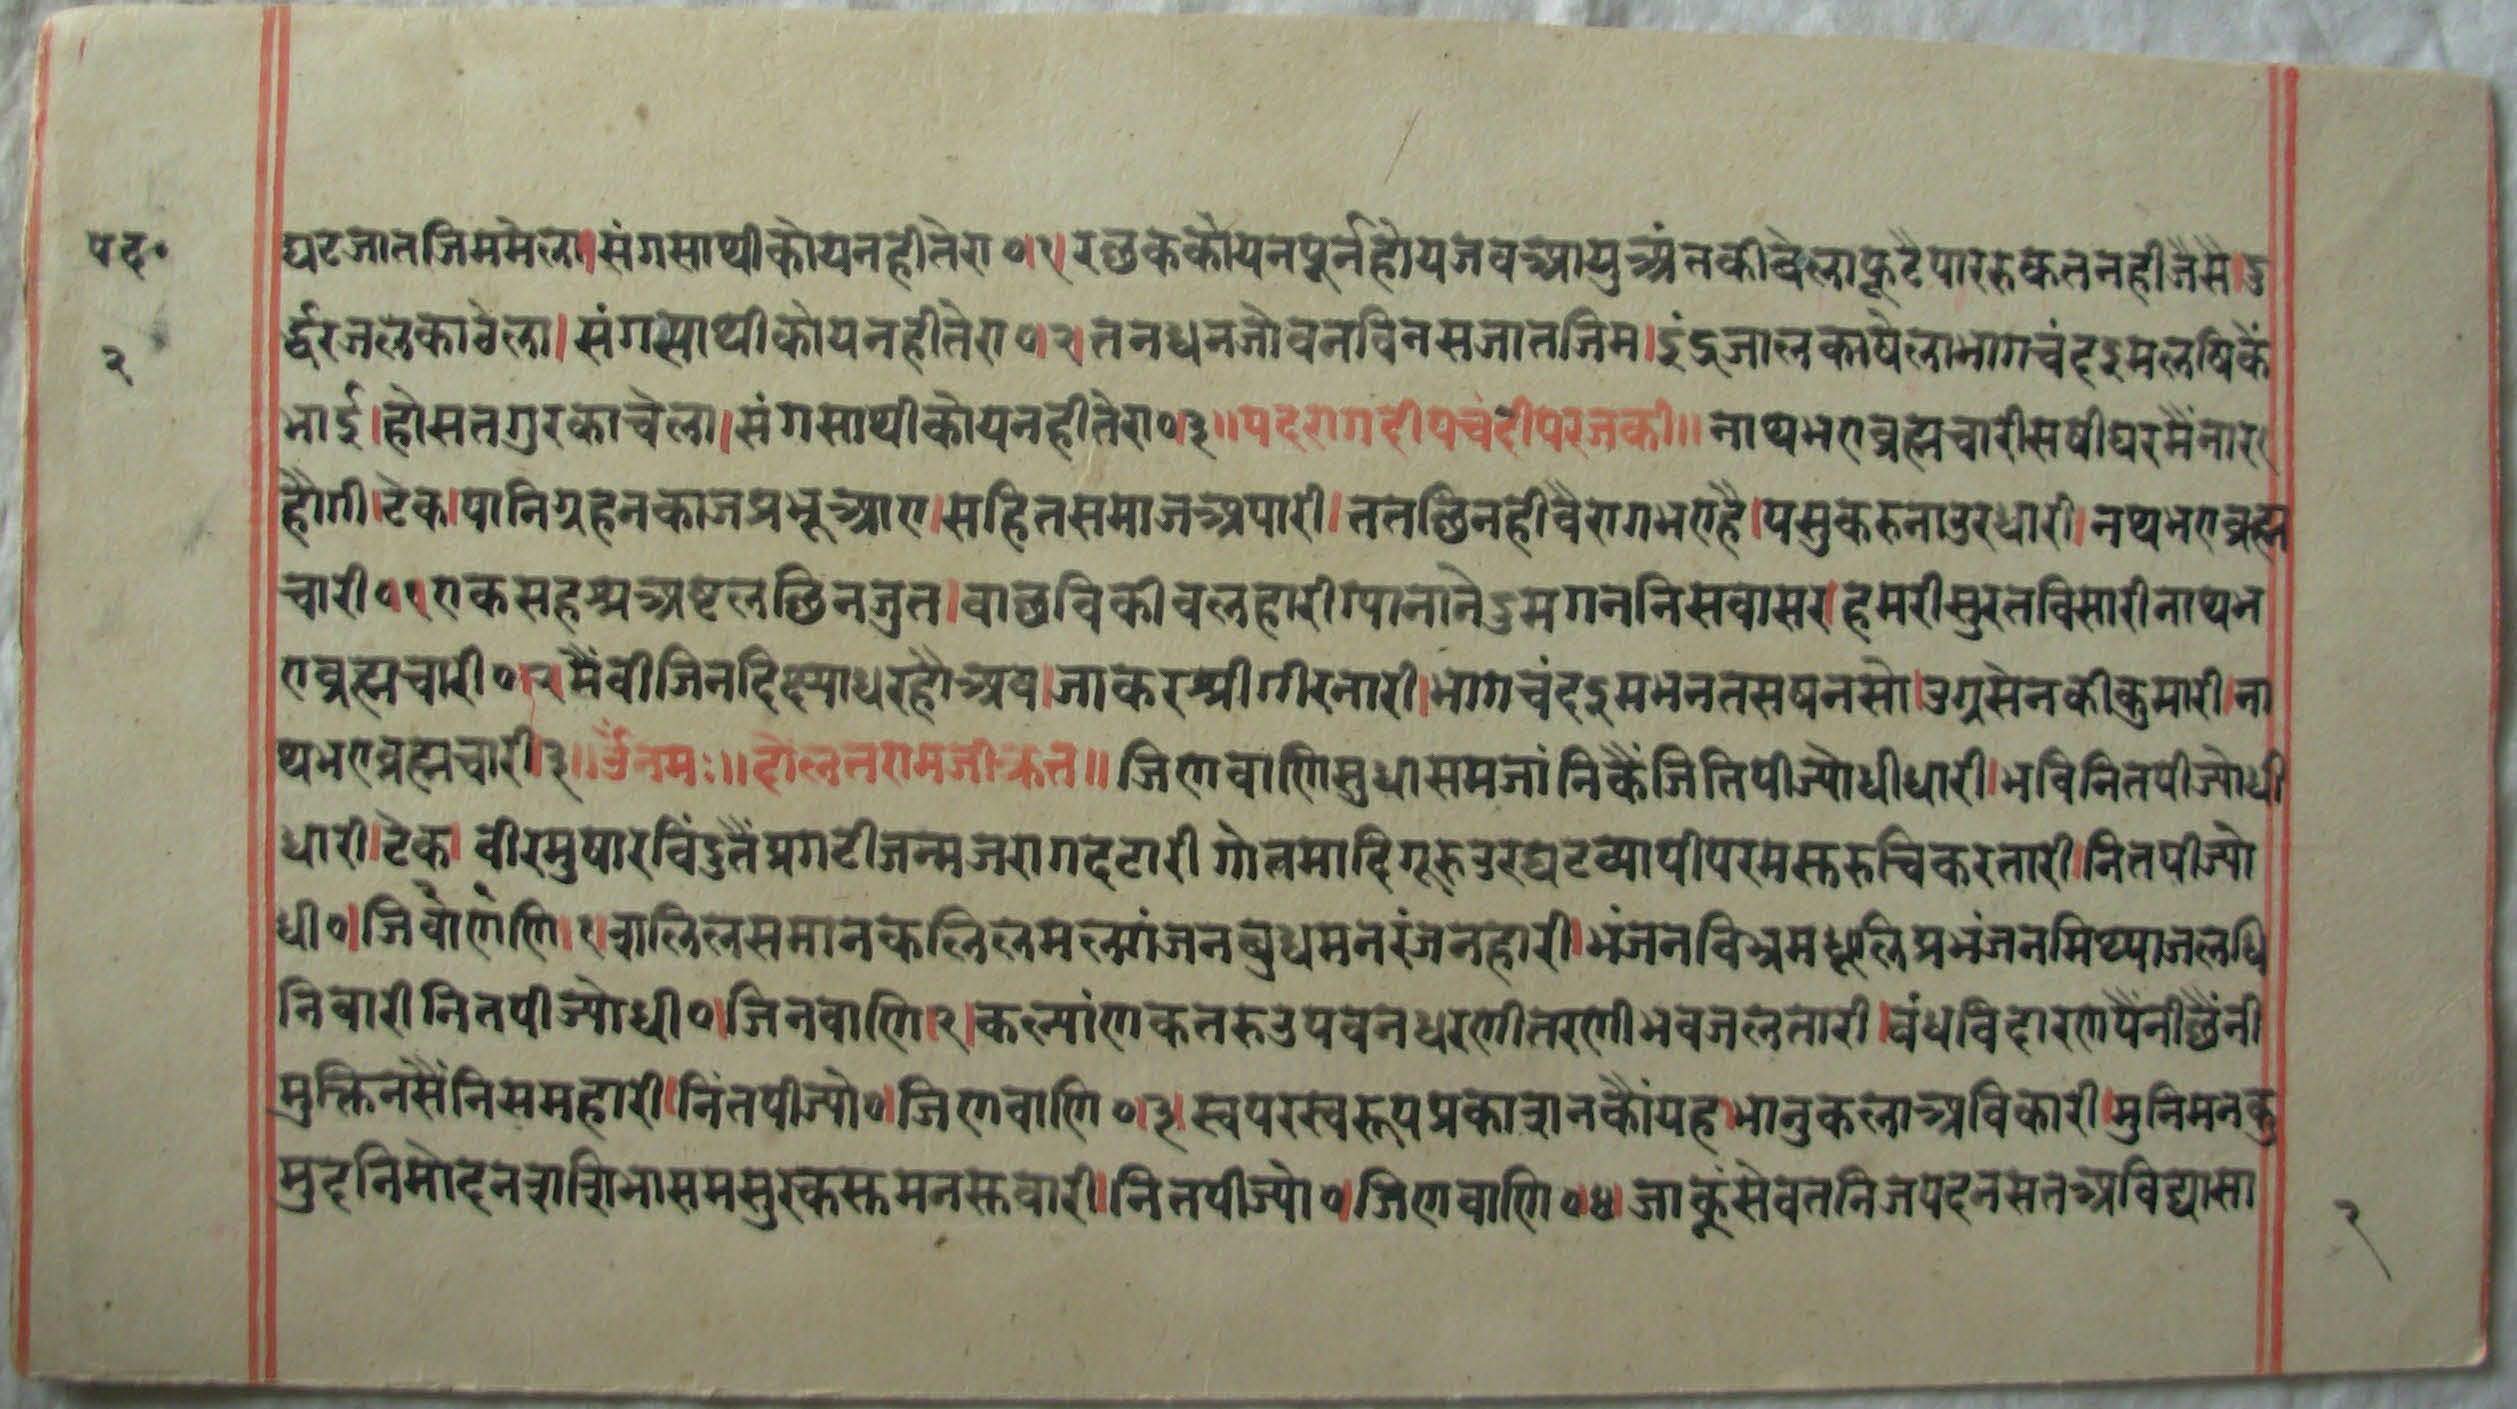 पद॰
२
घटजातजिममेला।संगसाथीकोयनहीतेरा॰।१।रछककोयनपूर्नहोयजवआयुअंतकीवेलाफूटैपाररुकतनहीजैसै।ढु
र्द्धरजलकाठेला।संगसाथीकोयनहीतेरा॰।२।तनधनजोवनविनसजातजिम।इंद्रजालकाषेलाभागचंदइमलषिकैं
भाई।होसतगुरकाचेला।संगसाथीकोयनहीतेरा॰।३॥पदरागदीपचंदीपरजकी॥नाथभएव्रह्मचारीसषीघरमैंनार
हौंगी।टेक।पानिग्रहनकाजप्रभूआए।सहितसमाजअपारी।ततछिनहीवैरागभएहै।पसुकरुनाउरधारी।नथभएव्रह्म
चारी॰।१।एकसहश्रअष्टलछिनजुत।वाछविकीवलहारीग्यानानंडमगननिसवासर।हमरीसुरतविसारीनाथभ
एव्रह्मचारी॰।२।मैंवीजिनदिक्ष्याधरहौंअव।जाकरश्रीगीरनारी।भागचंदइमभनतसषनसो।उग्रसेनकीकुमारी।ना
थभएव्रह्मचारी।३॥र्उंनमः॥दोलतरामजीक्रत॥जिणवाणिसुधासमजांनिकैंजितिपीज्योधीधारी।भविनितपीज्योधी
धारी।टेक।वीरमुषारविंदुतैंप्रगटीजन्मजरागदटारीगोतमादिगूरुउरघटव्यापीपरमस्तरुचिकरतारी।नितपीज्यो
धी॰।जिवांणंणि।१।शलिलसमानकलिलमलगंजनब्रुधमनरंजनहारी।भंजनविभ्रमधूलिप्रभंजनमिथ्याजलधि
निवारीनितपीज्योधी॰।जिनवाणि।२।कल्यांणकतरुउपवनधरणीतरणीभवजलतारी।वंधविदारणपैंनीछैंनी
मुक्तिनसैंनिसमहारी।निंतपीज्यो॰।जिणवाणि॰।३।स्वपरस्वरूपप्रकाशनकौंयह।भानुकलाअविकारी।मुनिमनकु
मुदनिमोदनशशिभासमसुरकस्तमनस्तवारी।नितपीज्यो॰।जिणवाणि॰।४।जाकूंसेवतनिजपदनसतअविद्यासा
२